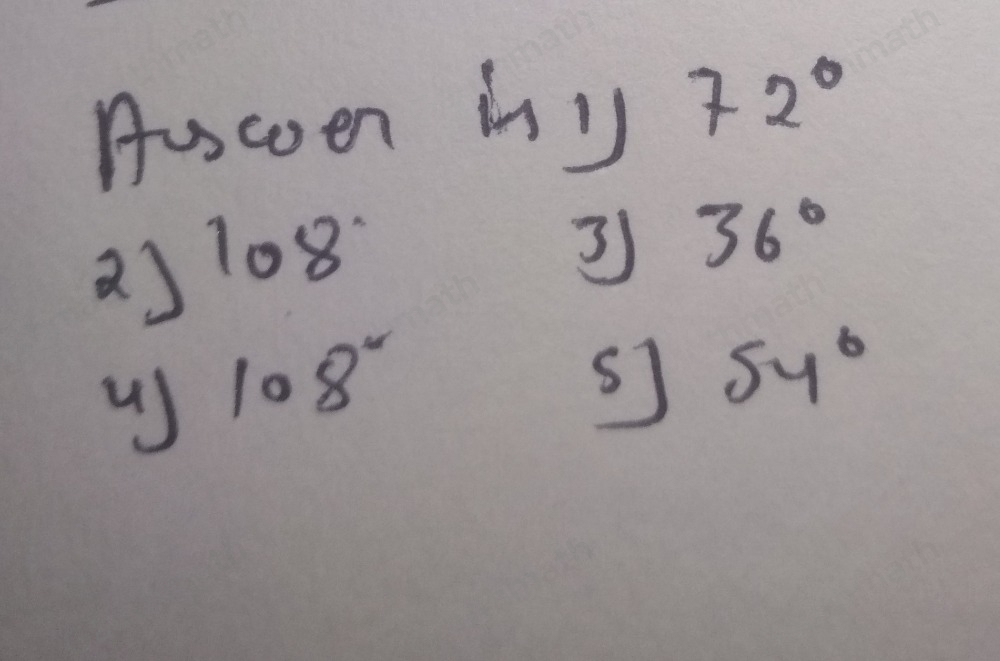 Answer is 1) 72°
2) 108° 3) 36°
4) 108° 5) 54°